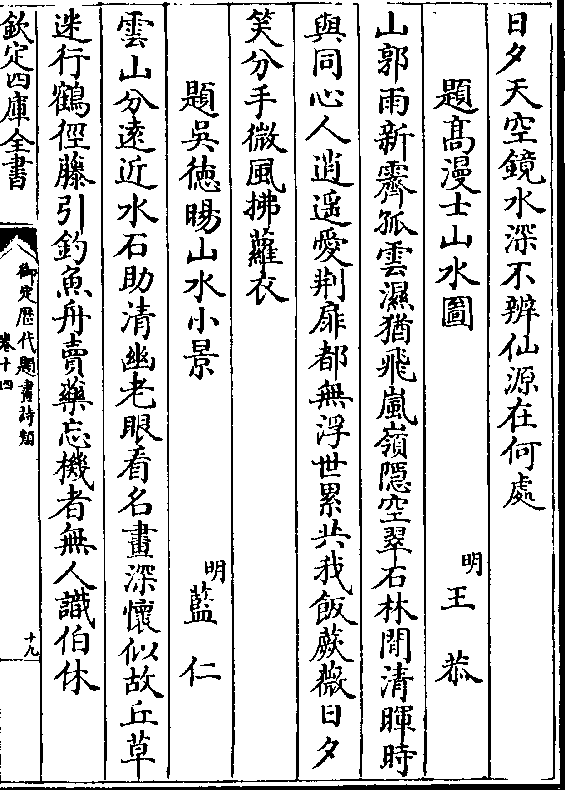 日夕天空鏡水深不辨仙源在何處
題髙漫士山水圖
明王恭
山郭雨新霽孤雲濕猶飛嵐嶺隱空翠石林閒清暉時
與同心人逍遥愛荆扉都無浮世累共我飯蕨薇日夕
笑分手微風拂蘿衣
題吳徳暘山水小景
明藍仁
雲山分遠近水石助清幽老眼看名畫深懷似故丘草
迷行鶴徑藤引釣魚舟賣藥忘機者無人識伯休
欽定四庫全書
御定歴代題畫詩類
卷十四
十九